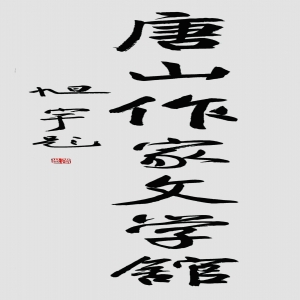 唐山作家文学館
恒宇题